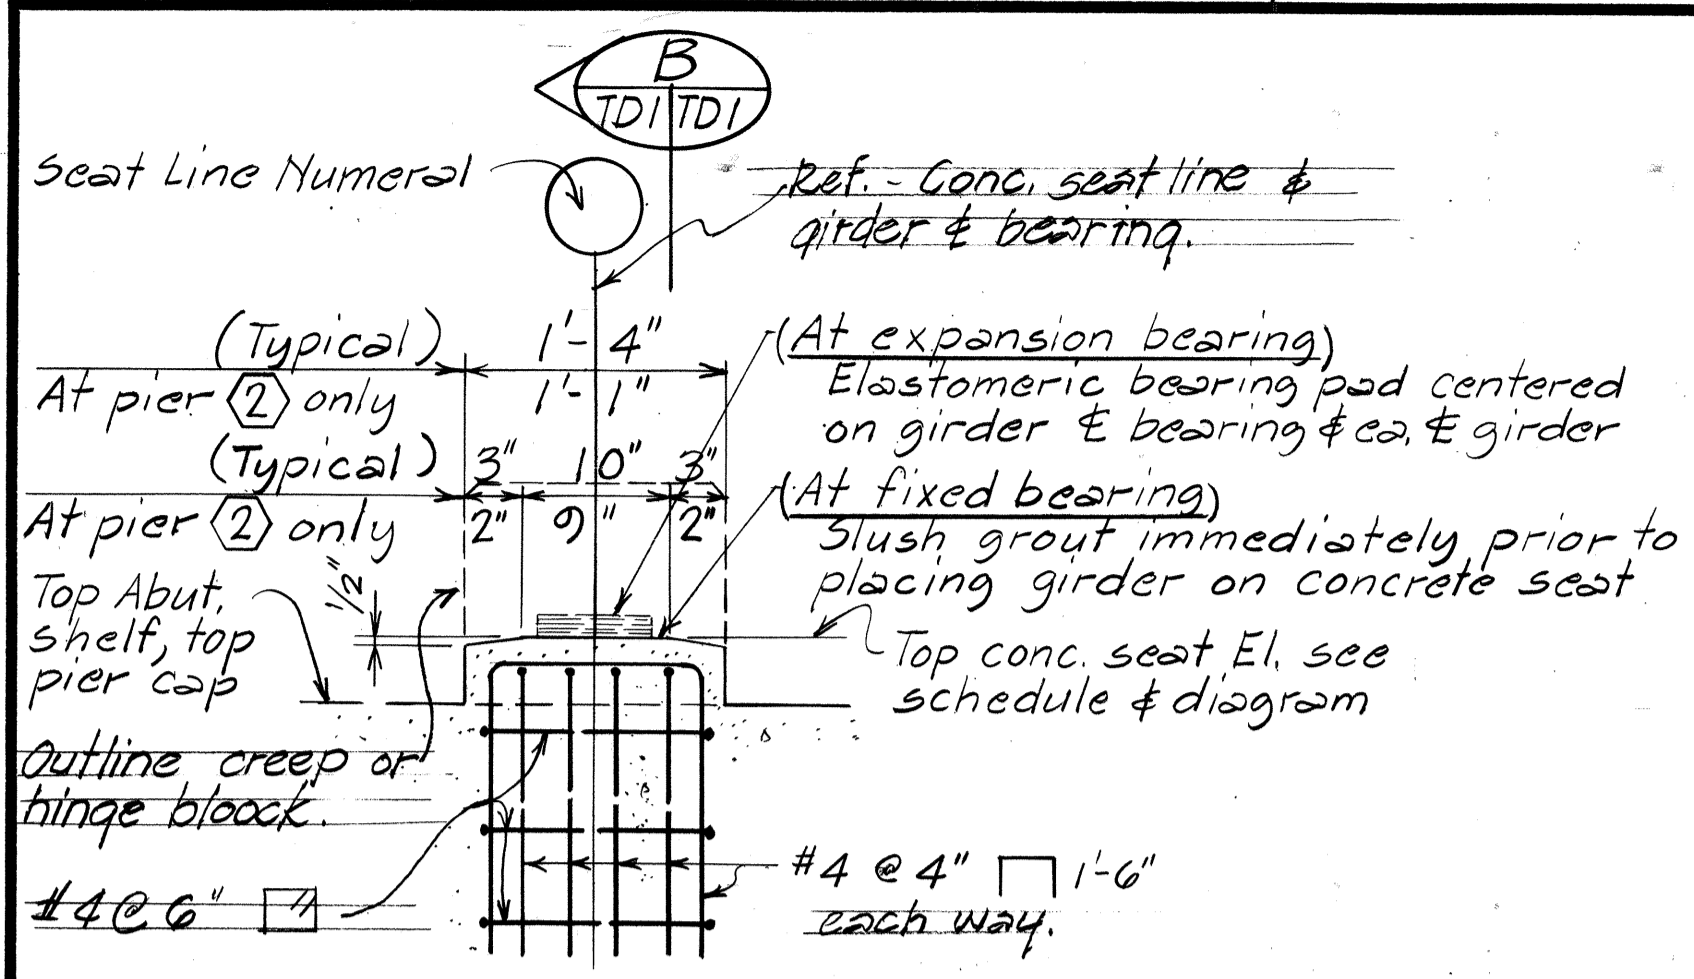 B
TD1 TD1
Seat Line Numeral
Ref. - Conc. seat line &
girder ℄ bearing.
(Typical) 1'- 4"
At pier 2 only 1'- 1"
(At expansion bearing)
Elastomeric bearing pad centered
on girder ℄ bearing & ea. ℄ girder
(Typical) 3" 10" 3"
At pier 2 only 2" 9" 2"
(At fixed bearing)
Slush grout immediately prior to
placing girder on concrete seat
1/2"
Top Abut.
shelf, top
pier cap
Top conc. seat El. see
schedule & diagram
Outline creep or
hinge bloock.
#4 @ 6"
#4 @ 4" 1'-6"
each way.